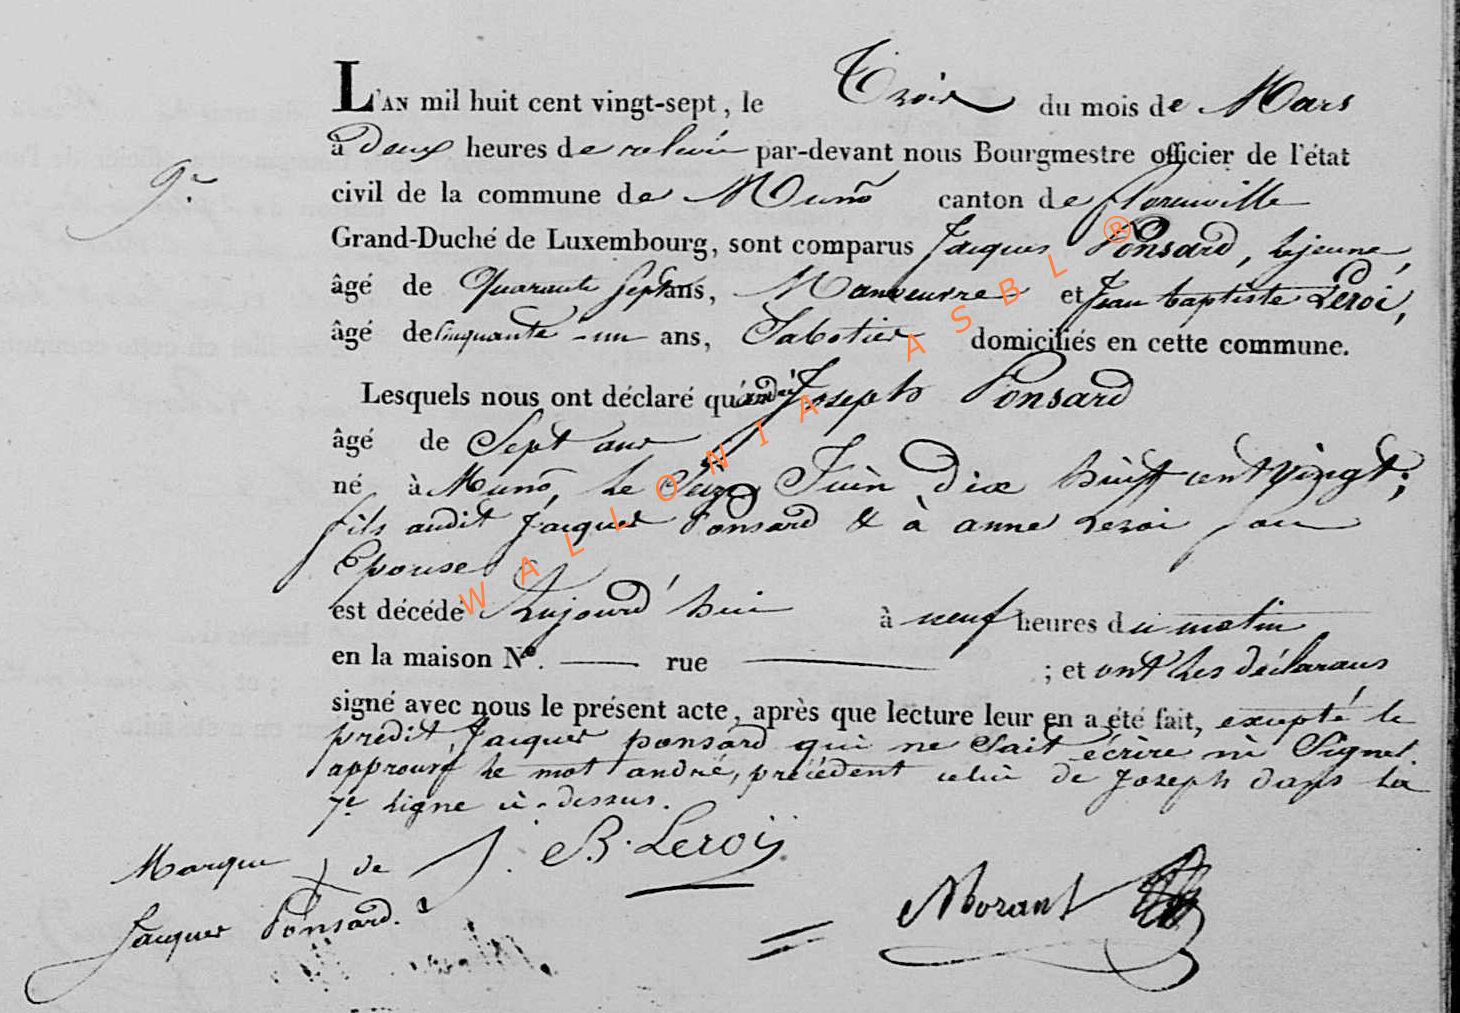 L'AN mil huit cent vingt-sept, le Trois du mois de Mars
à deux heures de relevée par-devant nous Bourgmestre officier de l'état
9.e
civil de la commune de Muno canton de florenville
Grand-Duché de Luxembourg, sont comparus Jacques Ponsard, lejeune,
âgé de Quarante Sept ans, Manoeuvre et Jean baptiste Leroi,
âgé de Cinquante-un ans, Sabotier domiciliés en cette commune.
Lesquels nous ont déclaré qu'andré Joseph Ponsard
âgé de Sept ans
né à Muno, le Seize Juin Dix huit cent vingt;
fils audit Jacques Ponsard & à anne Leroi son
Epouse
est décédé Aujourd'hui à neuf heures du matin
en la maison N.º — rue — ; et ont les déclarans
signé avec nous le présent acte, après que lecture leur en a été fait, excepté le
prédit Jacques ponsard qui ne Sait écrire ni Signer.
approuvé le mot andré, précédent celui de Joseph dans la
7.e ligne ci-dessus.
Marque de J. B. Leroij
Jacques Ponsard.
Morant
WALLONIA ASBL ®